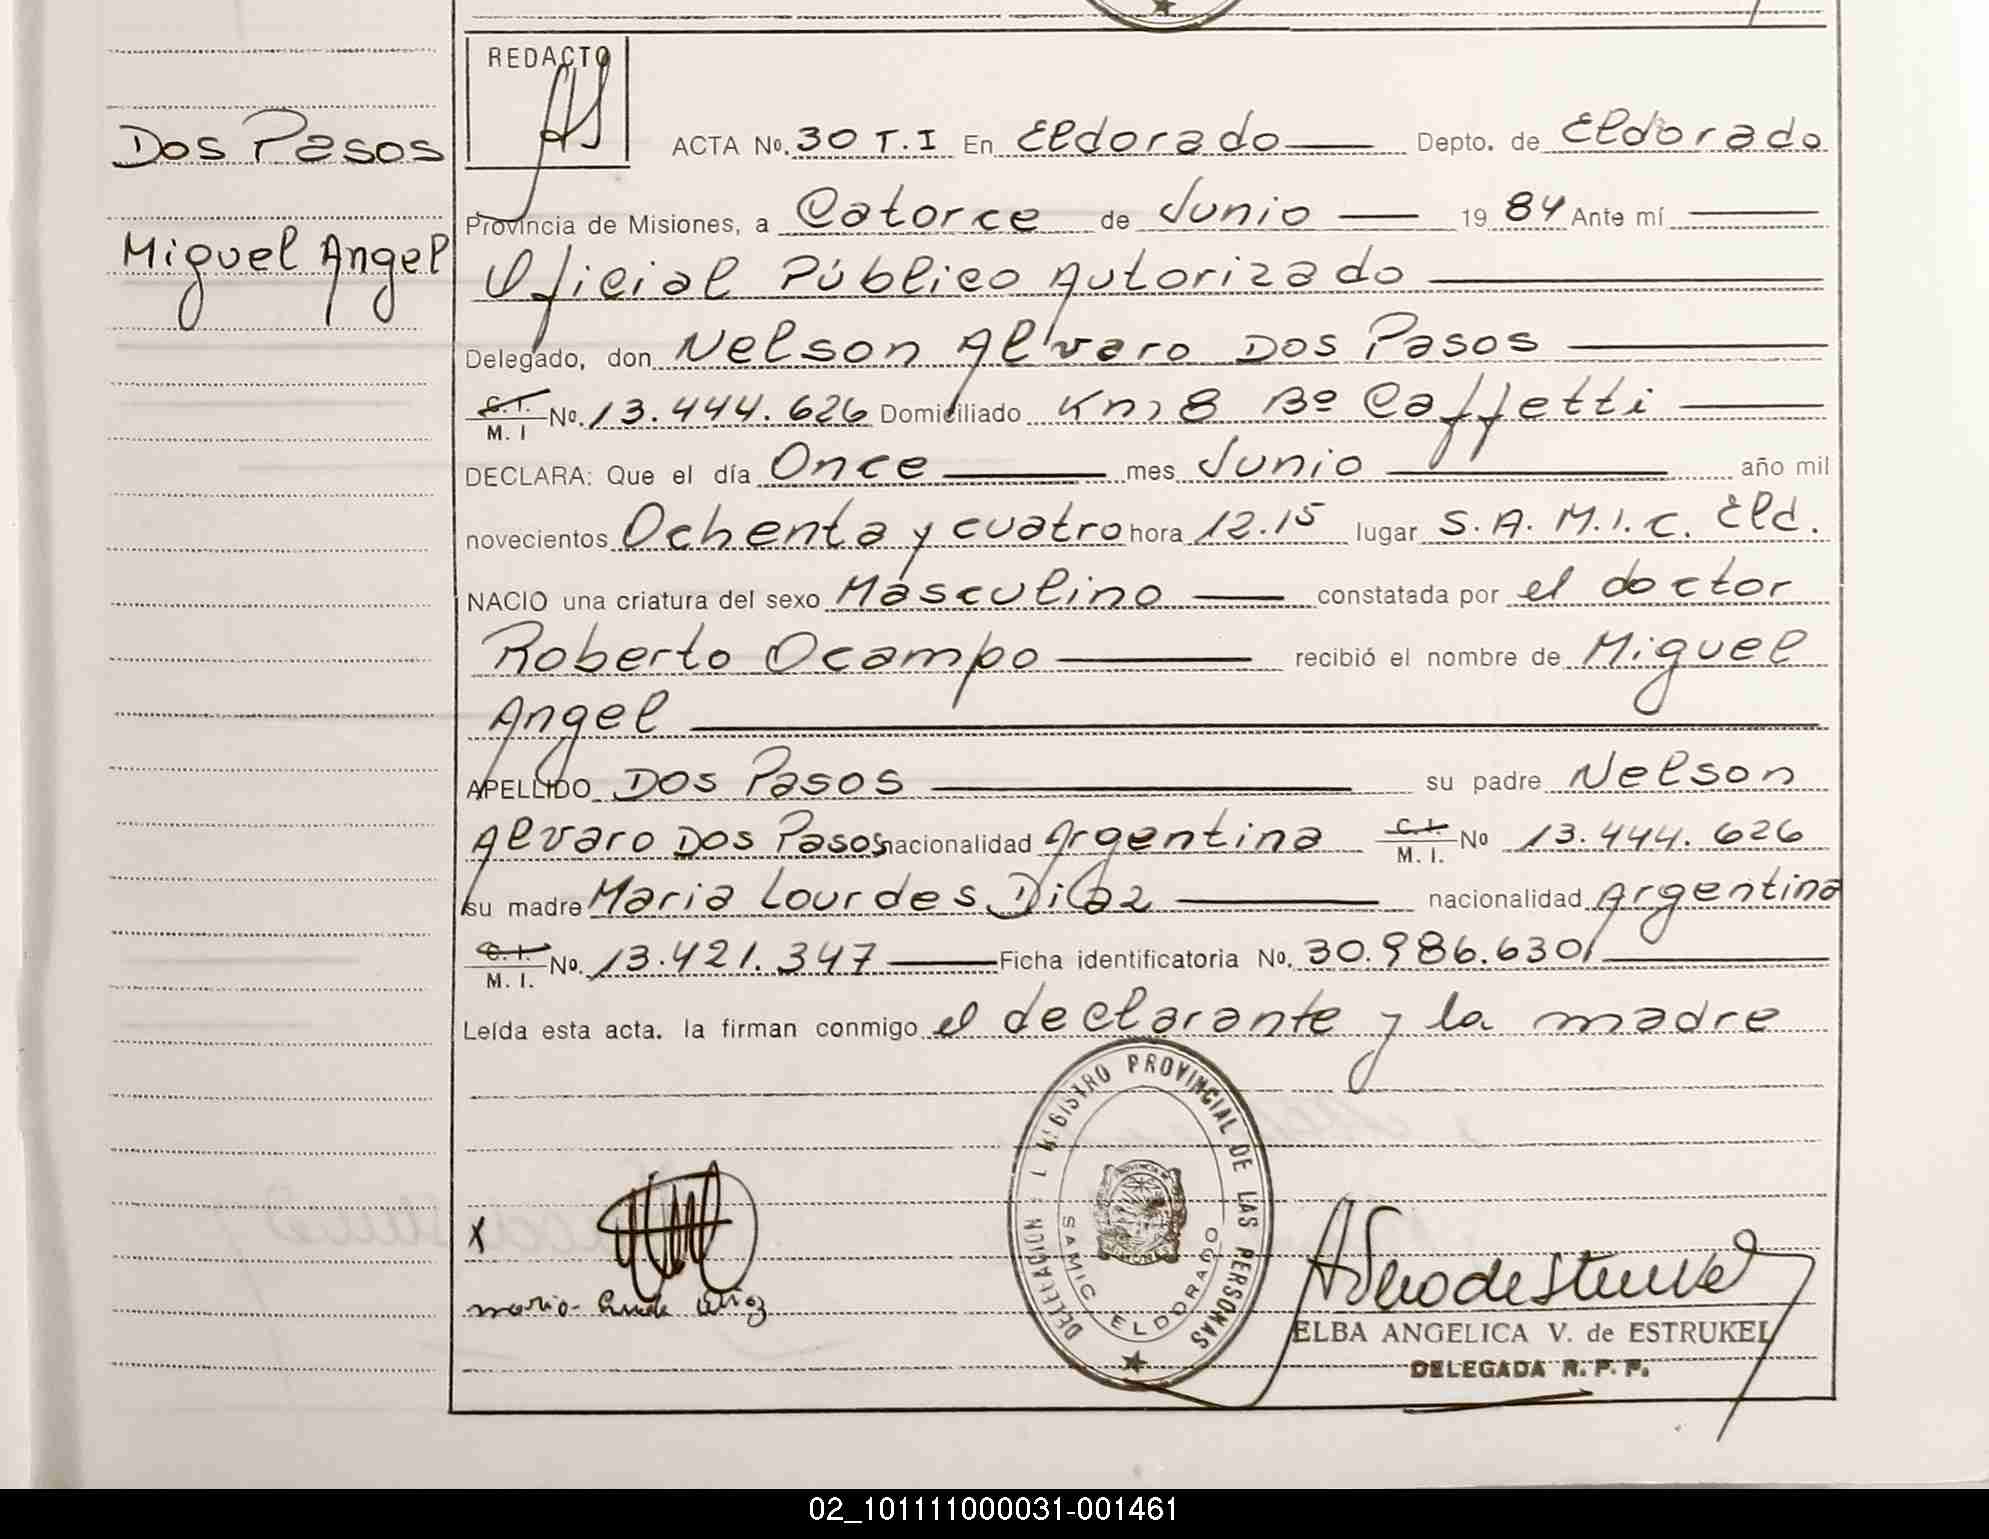 REDACTO
Dos Pasos
ACTA No. 30 T.I En Eldorado Depto. de Eldorado
Provincia de Misiones, a Catorce de Junio 19 84 Ante mí
Miguel Angel
Oficial Público Autorizado
Delegado, don Nelson Alvaro Dos Pasos
C.I. M. I No. 13.444.626 Domiciliado Km 8 Bº Caffetti
DECLARA: Que el día Once mes Junio año mil
novecientos Ochenta y cuatro hora 12.15 lugar S.A.M.I.C. Eld.
NACIO una criatura del sexo Masculino constatada por el doctor
Roberto Ocampo recibió el nombre de Miguel
Angel
APELLIDO Dos Pasos su padre Nelson
Alvaro Dos Pasos nacionalidad Argentina C.I. M. I. No 13.444.626
su madre Maria Lourdes Diaz nacionalidad Argentina
C.I. M. I. No. 13.421.347 Ficha identificatoria No. 30.986.630
Leída esta acta. la firman conmigo el declarante y la madre
REGISTRO PROVINCIAL DE LAS PERSONAS
DELEGACION
SAMIC ELDORADO
X
ELBA ANGELICA V. de ESTRUKEL
DELEGADA R. P. P.
02_101111000031-001461